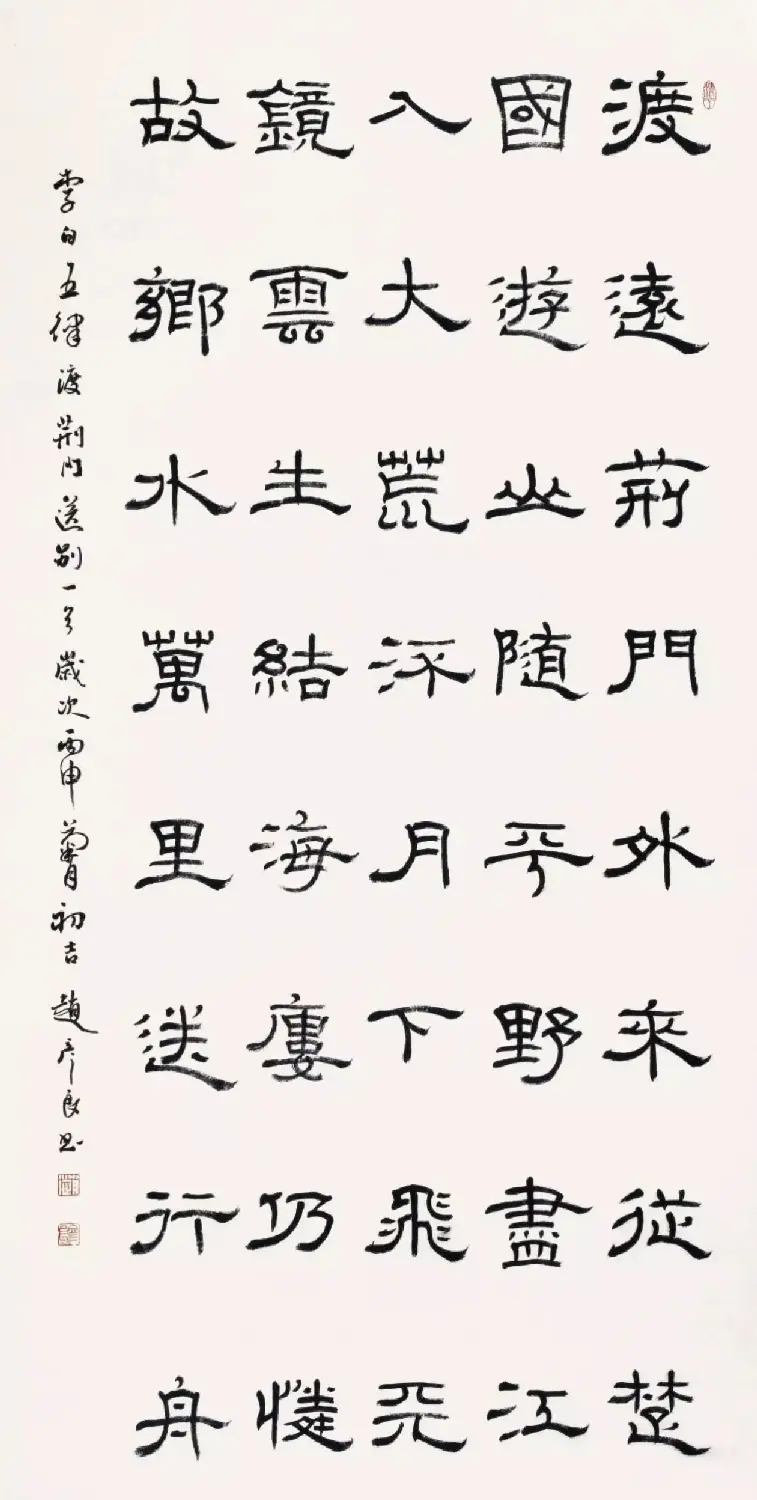 渡遠荊門外來從楚
國遊山随平野盡江
入大荒流月下飛天
鏡雲生結海廔仍憐
故鄉水萬里送行舟
李白五律渡荆門送别一首歲次丙申月初吉趙彦良书